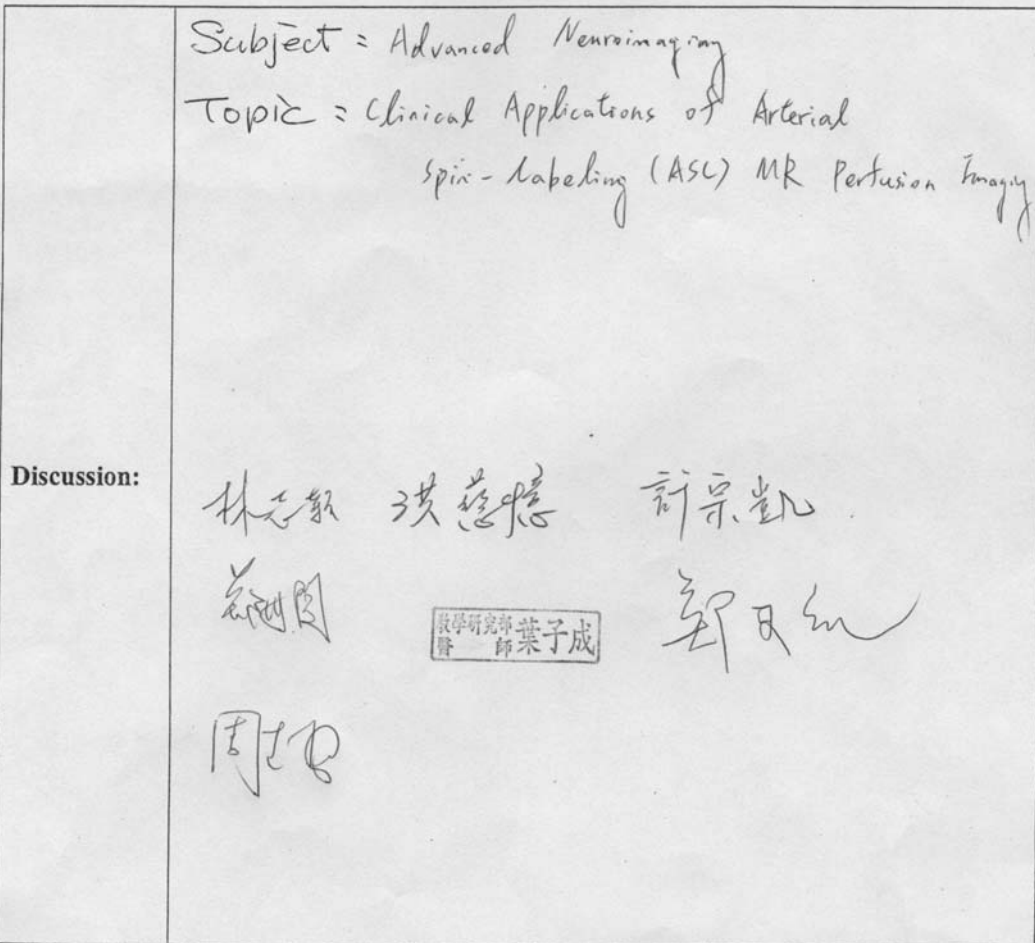 Subject : Advanced Neuroimaging
Topic : Clinical Applications of Arterial
Spin-Labeling (ASL) MR Perfusion Imaging
Discussion:
林志 洪慈憶 許宗凱
教學研究部
醫師 葉子成
鄭
周